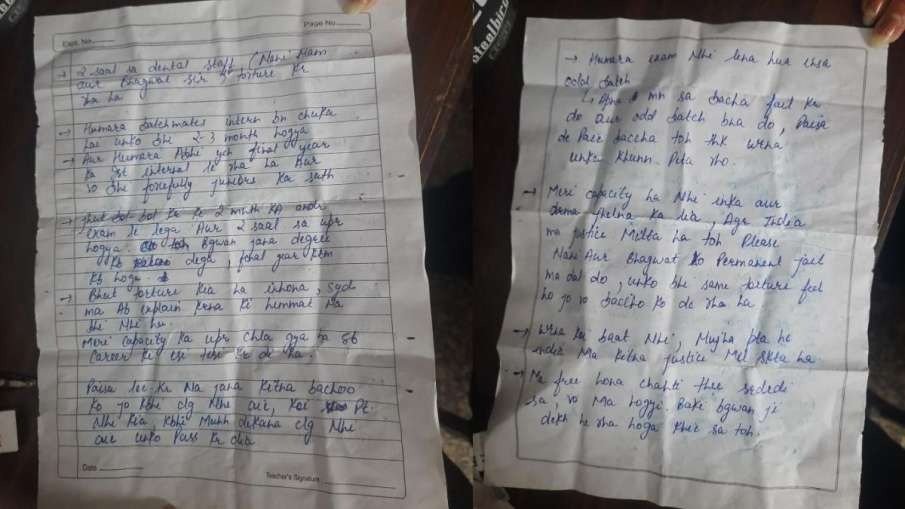 steelbird
Page No.
Expt. No.
→ 2 saal sa dental staff (Nani Mam
aur Bhagwat Sir torture kr
rha ha
→ Humara batchmates intern bn chuka
hai unko bhi 2-3 month hogya
→ Aur Humara Abhi yeh final year
ka 1st internal le rha ha Aur
vo bhi forcefully juniors ka sath
→ jhut bol-bol kr ke 2 mnth ka andr
exam le lega Aur 2 saal sa upr
hogya. Bgwan jana degree
kb dega, final year km
kb hoga
→ Bhut torture kia ha inhona,
ma Ab explain krna ki himmat na
bhi Nhi hu.
Meri capacity ka upr chla gya ta sb
Career ki esi tesi kr di ha.
Paisa lee-kr Na jana kitna bachoo
ko jo kbhi clg Nhi aie, koi Pt.
Nhi kia kbhi Munh dikana clg Nhi
aie unko Pass kr dia
Date
Teacher's Signature
→ Humara exam Nhi lena hua
odd batch
↳ Apne mn sa bacha fail kr
do aur odd batch bna do, Paisa
de Paas baccha toh thk wrna
unka khunn Pita rho.
→ Meri capacity ha Nhi inka aur
jhelna ka lia, Agr India
ma justice Milta ha toh Please
Nani Aur Bhagwat ko Permanent jail
ma dal do, unko bhi same torture feel
ho jo vo baccho ko de rha ha
→ Wrna koi baat Nhi, Mujha pta ha
India Ma kitna justice Mil skta ha.
→ Ma free hona chahti thee
sa, vo Ma hogyi. Baki bgwan ji
dekh he rha hoga khi sa toh.